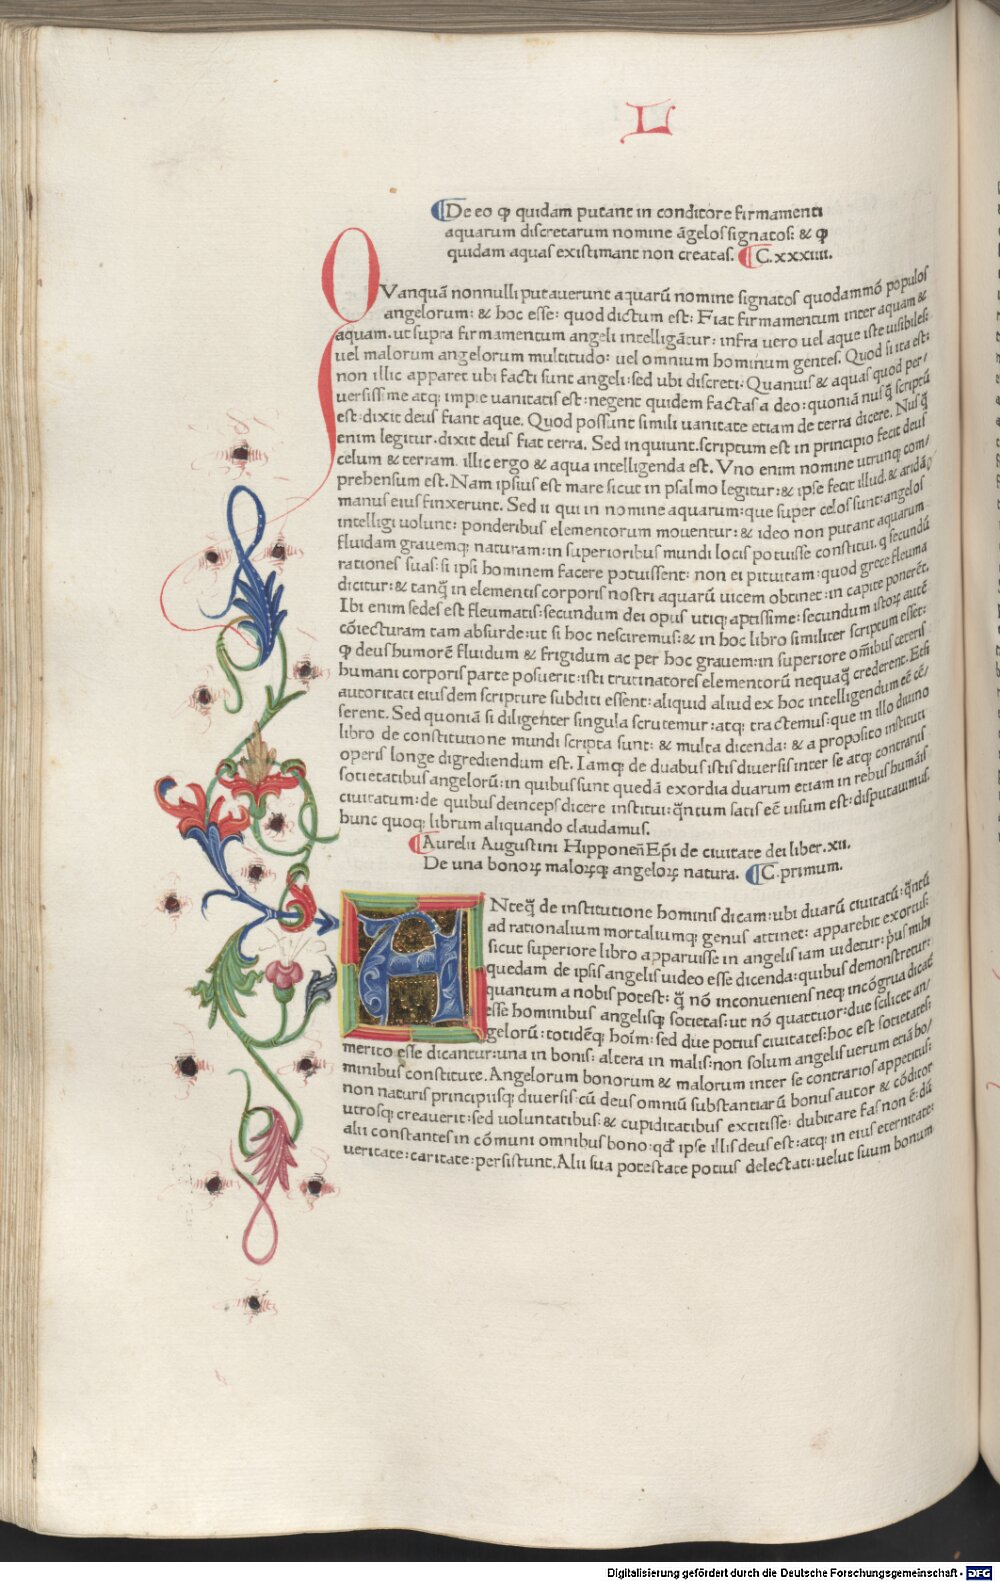 L
De eo ꝙ quidam putant in conditore firmamenti
aquarum discretarum nomine āgelos signatos: & ꝙ
quidam aquas existimant non creatas. C. xxxiiii.
QVanquā nonnulli putauerunt aquarū nomine signatos quodammō populos
angelorum: & hoc esse: quod dictum est: Fiat firmamentum inter aquam &
aquam. ut supra firmamentum angeli intelligātur: infra uero uel aque iste uisibiles:
uel malorum angelorum multitudo: uel omnium hominum gentes. Quod si ita est:
non illic apparet ubi facti sunt angeli: sed ubi discreti: Quanuis & aquas quod per/
uersissime atq; impie uanitatis est: negent quidem factas a deo: quoniā nusq̄ scriptū
est: dixit deus fiant aque. Quod possunt simili uanitate etiam de terra dicere. Nusq̄
enim legitur. dixit deus fiat terra. Sed inquiunt. scriptum est in principio fecit deus
celum & terram. illic ergo & aqua intelligenda est. Vno enim nomine utrunq; com/
prehensum est. Nam ipsius est mare sicut in psalmo legitur: & ipse fecit illud. & aridā
manus eius finxerunt. Sed ii qui in nomine aquarum: que super celos sunt: angelos
intelligi uolunt: ponderibus elementorum mouentur: & ideo non putant aquarum
fluidam grauemq; naturam: in superioribus mundi locis potuisse constitui. q secundū
rationes suas: si ipsi hominem facere potuissent: non ei pituitam: quod grece fleuma
dicitur: & tanq̄ in elementis corporis nostri aquarū uicem obtinet: in capite ponerēt.
Ibi enim sedes est fleumatis: secundum dei opus utiq; aptissime: secundum istoꝝ autē
cōiecturam tam absurde: ut si hoc nesciremus: & in hoc libro similiter scriptum esset:
ꝙ deus humorē fluidum & frigidum ac per hoc grauem: in superiore om̄ibus ceteris
humani corporis parte posuerit: isti trutinatores elementorū nequaq̄ crederent. Et si
autoritati eiusdem scripture subditi essent: aliquid aliud ex hoc intelligendum eē cē/
serent. Sed quoniā si diligenter singula scrutemur: atq; tractemus: que in illo diuino
libro de constitutione mundi scripta sunt: & multa dicenda: & a proposito instituti
operis longe digrediendum est. Iamq; de duabus istis diuersis inter se atq; contrariis
societatibus angelorū: in quibus sunt quedā exordia duarum etiam in rebus humāis
ciuitatum: de quibus deinceps dicere institui: q̄ntum satis eē uisum est: disputauimus.
hunc quoq; librum aliquando claudamus.
Aurelii Augustini Hipponeñ Ep̄i de ciuitate dei liber. xii.
De una bonoꝝ maloꝝq; angeloꝝ natura. C. primum.
ANteq̄ de institutione hominis dicam: ubi duarū ciuitatū: q̄ntū
ad rationalium mortaliumq; genus attinet: apparebit exortus:
sicut superiore libro apparuisse in angelis iam uidetur: p̄us mihi
quedam de ipsis angelis uideo esse dicenda: quibus demonstretur:
quantum a nobis potest: q̄ nō inconueniens neq; incōgrua dicat̄
esse hominibus angelisq; societas: ut nō quattuor: due scilicet an/
gelorū: totidēq; hoīm: sed due potius ciuitates: hoc est societates:
merito esse dicantur: una in bonis: altera in malis: non solum angelis uerum etiā ho/
minibus constitute. Angelorum bonorum & malorum inter se contrarios appetitus:
non naturis principiisq; diuersis: cū deus omniū substantiarū bonus autor & cōditor
utrosq; creauerit: sed uoluntatibus: & cupiditatibus extitisse: dubitare fas non ē: dū
alii constantes in cōmuni omnibus bono: qđ ipse illis deus est: atq; in eius eternitate:
ueritate: caritate: persistunt. Alii sua potestate potius delectati: uelut suum bonum
Digitalisierung gefördert durch die Deutsche Forschungsgemeinschaft - DFG